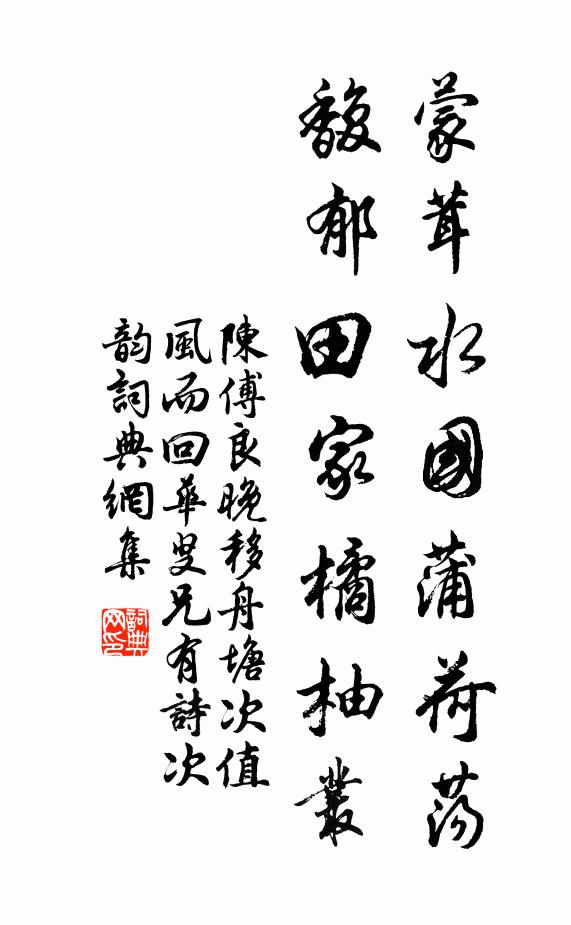 蒙茸水國蒲荷蕩
馥郁田家橘柚叢
陳傅良晚移舟塘次值
風而回華叟兄有詩次
韵詞典網集
詞典網印